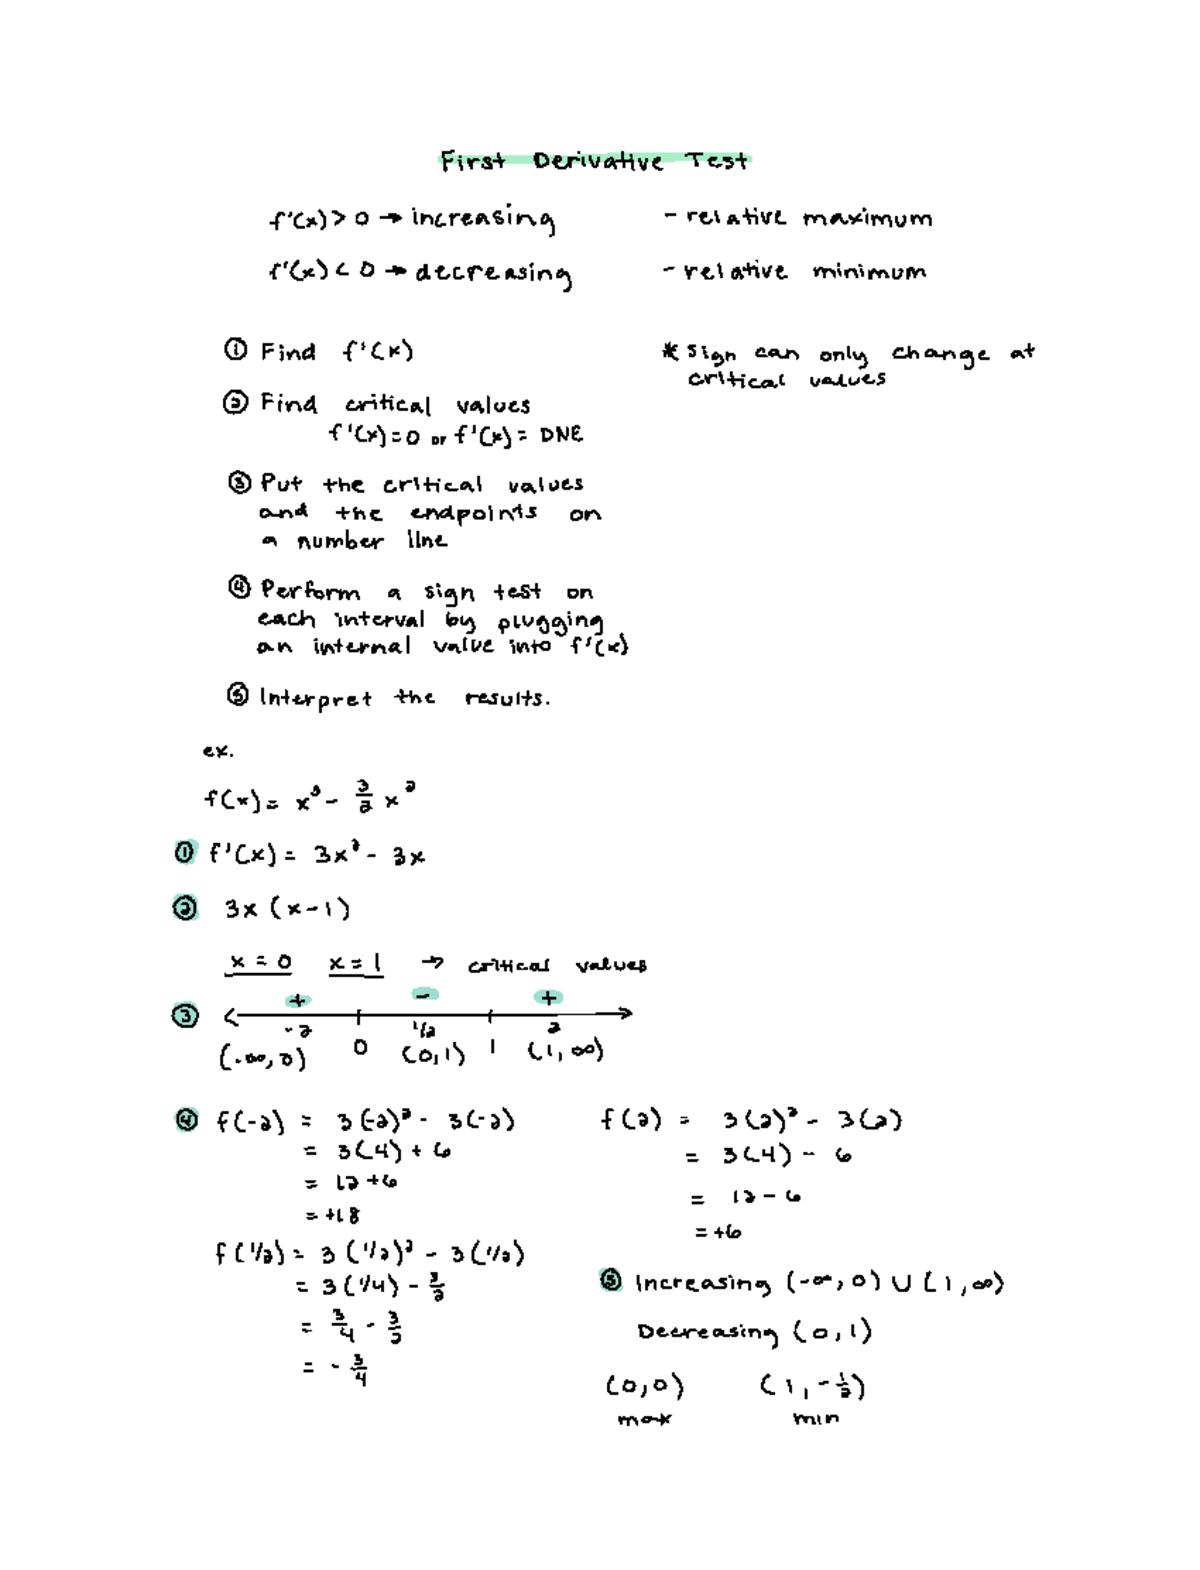 First Derivative Test
f'(x) > 0 → increasing
- relative maximum
f'(x) < 0 → decreasing
- relative minimum
① Find f'(x)
* sign can only change at
critical values
② Find critical values
f'(x) = 0 or f'(x) = DNE
③ Put the critical values
and the endpoints on
a number line
④ Perform a sign test on
each interval by plugging
an internal value into f'(x)
⑤ Interpret the results.
ex.
f(x) = x³ - 3/2 x²
① f'(x) = 3x² - 3x
② 3x (x-1)
x = 0 x = 1 → critical values
+ - +
③ -2 1/2 2
(-∞, 0) 0 (0,1) 1 (1, ∞)
④ f(-2) = 3(-2)² - 3(-2)
= 3(4) + 6
= 12 + 6
= +18
f(1/2) = 3(1/2)² - 3(1/2)
= 3(1/4) - 3/2
= 3/4 - 3/2
= - 3/4
f(2) = 3(2)² - 3(2)
= 3(4) - 6
= 12 - 6
= +6
⑤ Increasing (-∞, 0) ∪ (1, ∞)
Decreasing (0, 1)
(0,0) (1, -1/2)
max min